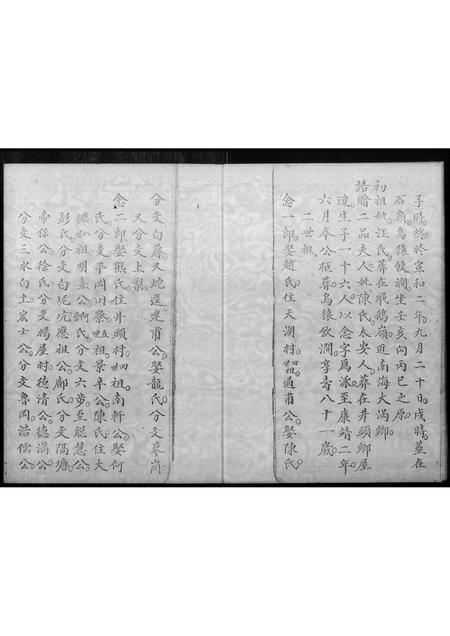 子時終於宣和二年九月二十日戌時塟在
石嶺烏猿飲澗坐壬亥向丙巳之原
初祖妣汪氏葬在飛鵝嶺道南海大滿鄉
誥贈二品夫人妣陳氏太安人葬在井頭鄉屋
邊生子一十六人以念字爲派至康靖二年
六月奉公柩葬烏猿飲澗享壽八十一歲
二世祖
念一郎娶趙氏住天湖村四世祖通甫公娶陳氏
分支白藤又蛇逕遠甫公娶龍氏分支寥崗
又分支上寮
念二郎娶熊氏住井頭村四世祖南軒公娶何
氏分支平岡田寮五世祖景平公陳氏住大
塘世祖明熹公胡氏分支六步至聰慧公
彭氏分支白坭坑應祖公鄺氏分支隔塘
常保公徐氏分支楊屋村德清公德滿公
分支三水白土宏士公分支魯岡諾儒公